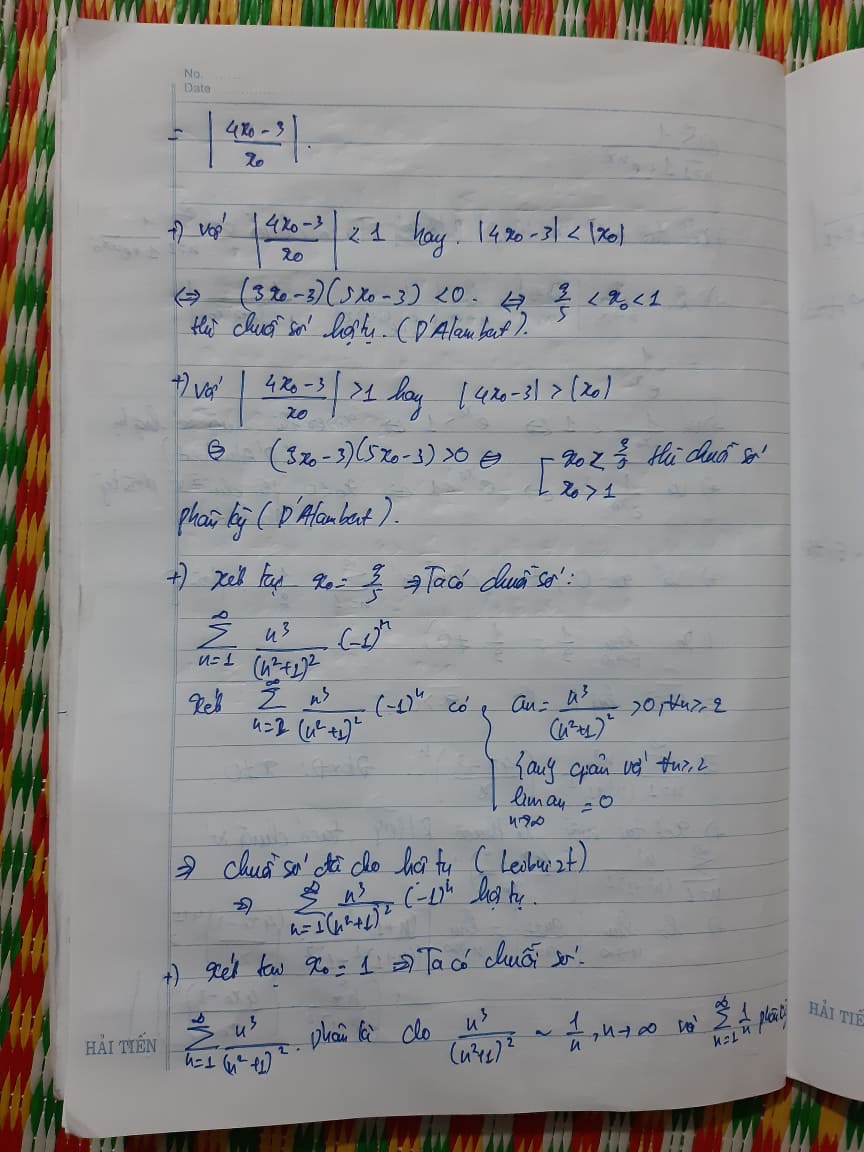 No.
Date
= |(4x₀ - 3)/x₀|.
+) Với |(4x₀ - 3)/x₀| < 1 hay |4x₀ - 3| < |x₀|
⇔ (3x₀ - 3)(5x₀ - 3) < 0. ⇔ 3/5 < x₀ < 1
thì chuỗi số hội tụ. (D'Alambert).
+) Với |(4x₀ - 3)/x₀| > 1 hay |4x₀ - 3| > |x₀|
⇔ (3x₀ - 3)(5x₀ - 3) > 0 ⇔ [ x₀ < 3/5 thì chuỗi số
x₀ > 1
phân kỳ (D'Alambert).
+) Xét tại x₀ = 3/5 ⇒ Ta có chuỗi số:
∑_{n=1}^{∞} n³/(n²+1)² (-1)ⁿ
Xét ∑_{n=2}^{∞} n³/(n²+1)² (-1)ⁿ có { aₙ = n³/(n²+1)² > 0, ∀n ≥ 2
{aₙ} giảm với ∀n ≥ 2
lim_{n→∞} aₙ = 0
⇒ chuỗi số đã cho hội tụ (Leibnizt)
⇒ ∑_{n=1}^{∞} n³/(n²+1)² (-1)ⁿ hội tụ.
+) Xét tại x₀ = 1 ⇒ Ta có chuỗi số:
∑_{n=1}^{∞} n³/(n²+1)². phân kì do n³/(n²+1)² ~ 1/n, n→∞ và ∑_{n=1}^{∞} 1/n phân kỳ
HẢI TIẾN
HẢI TIẾ